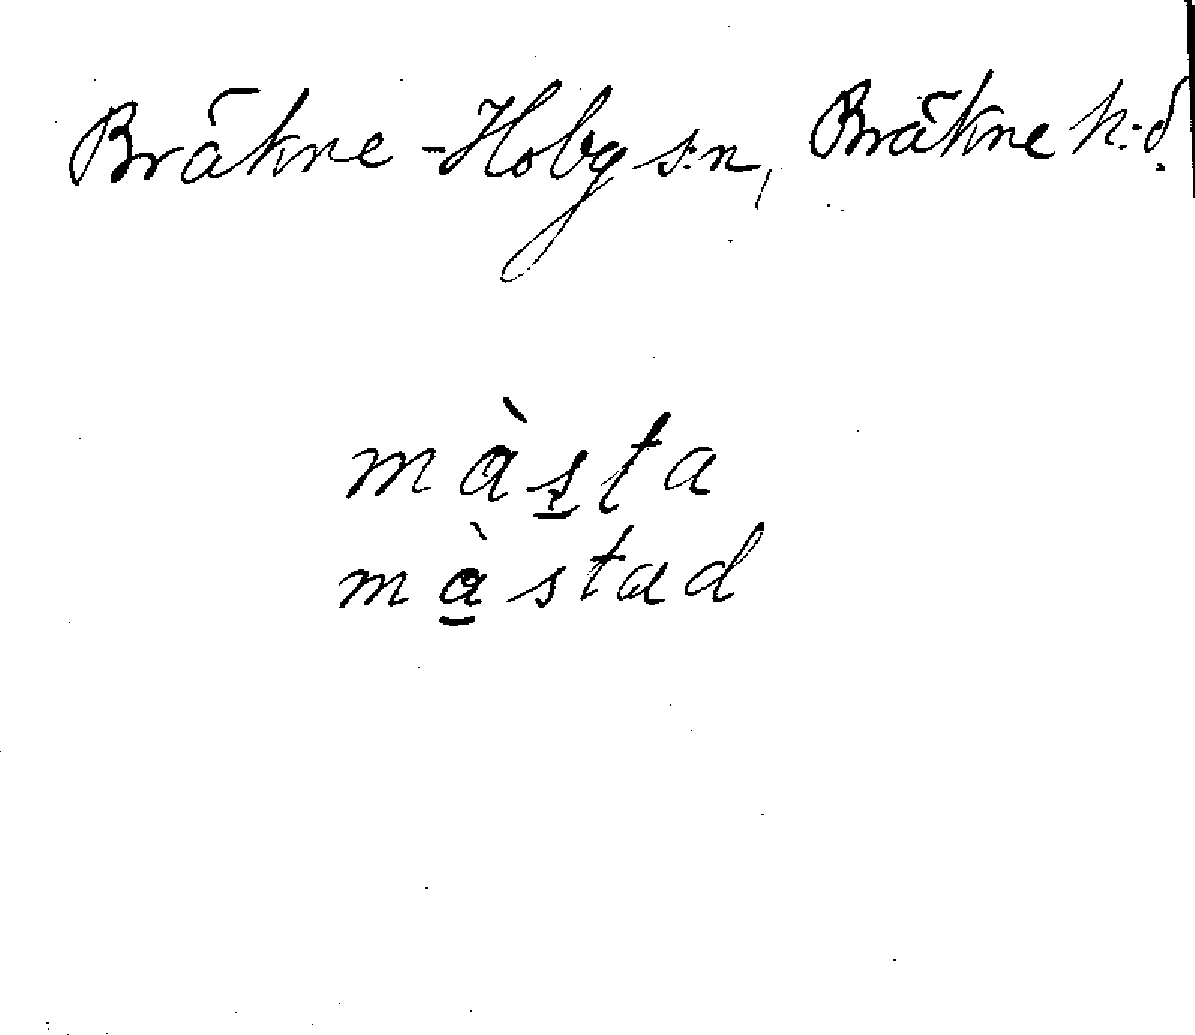 Bräkne-Hoby s:n, Bräkne h:d.
màs̲ta
mà̲stad